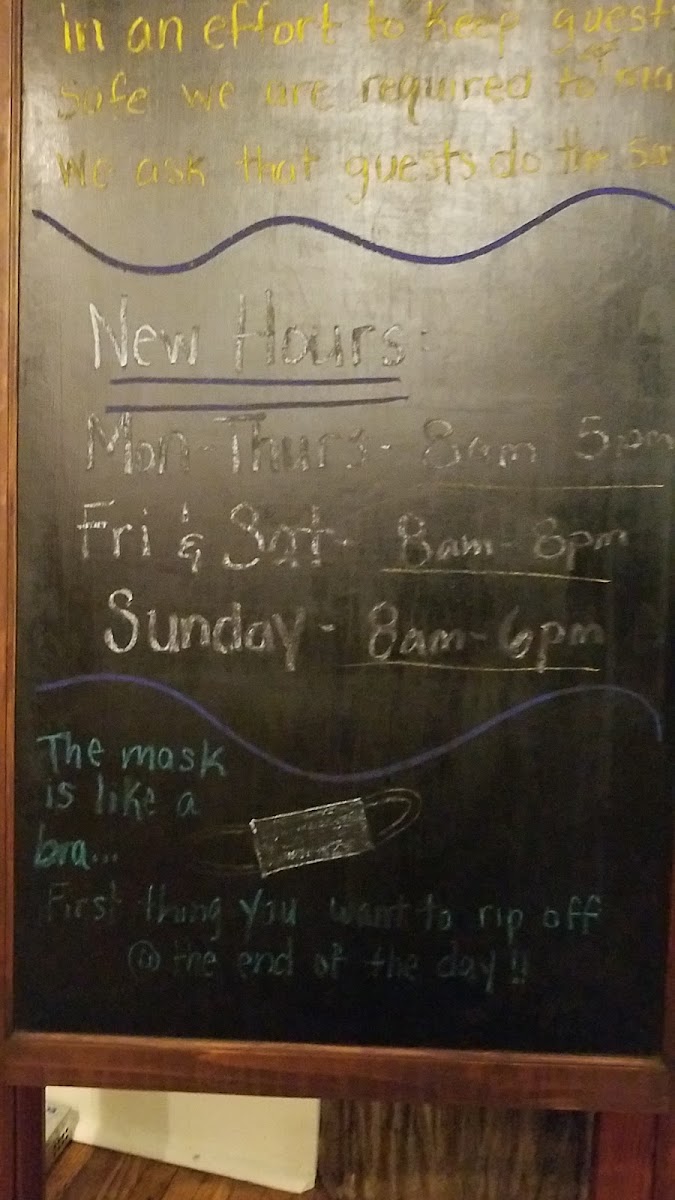 In an effort to keep guests
safe we are required to
We ask that guests do the
New Hours:
Mon-Thurs- 8am 5pm
Fri & Sat- 8am- 8pm
Sunday- 8am-6pm
The mask
is like a
bra...
First thing you want to rip off
@ the end of the day!!